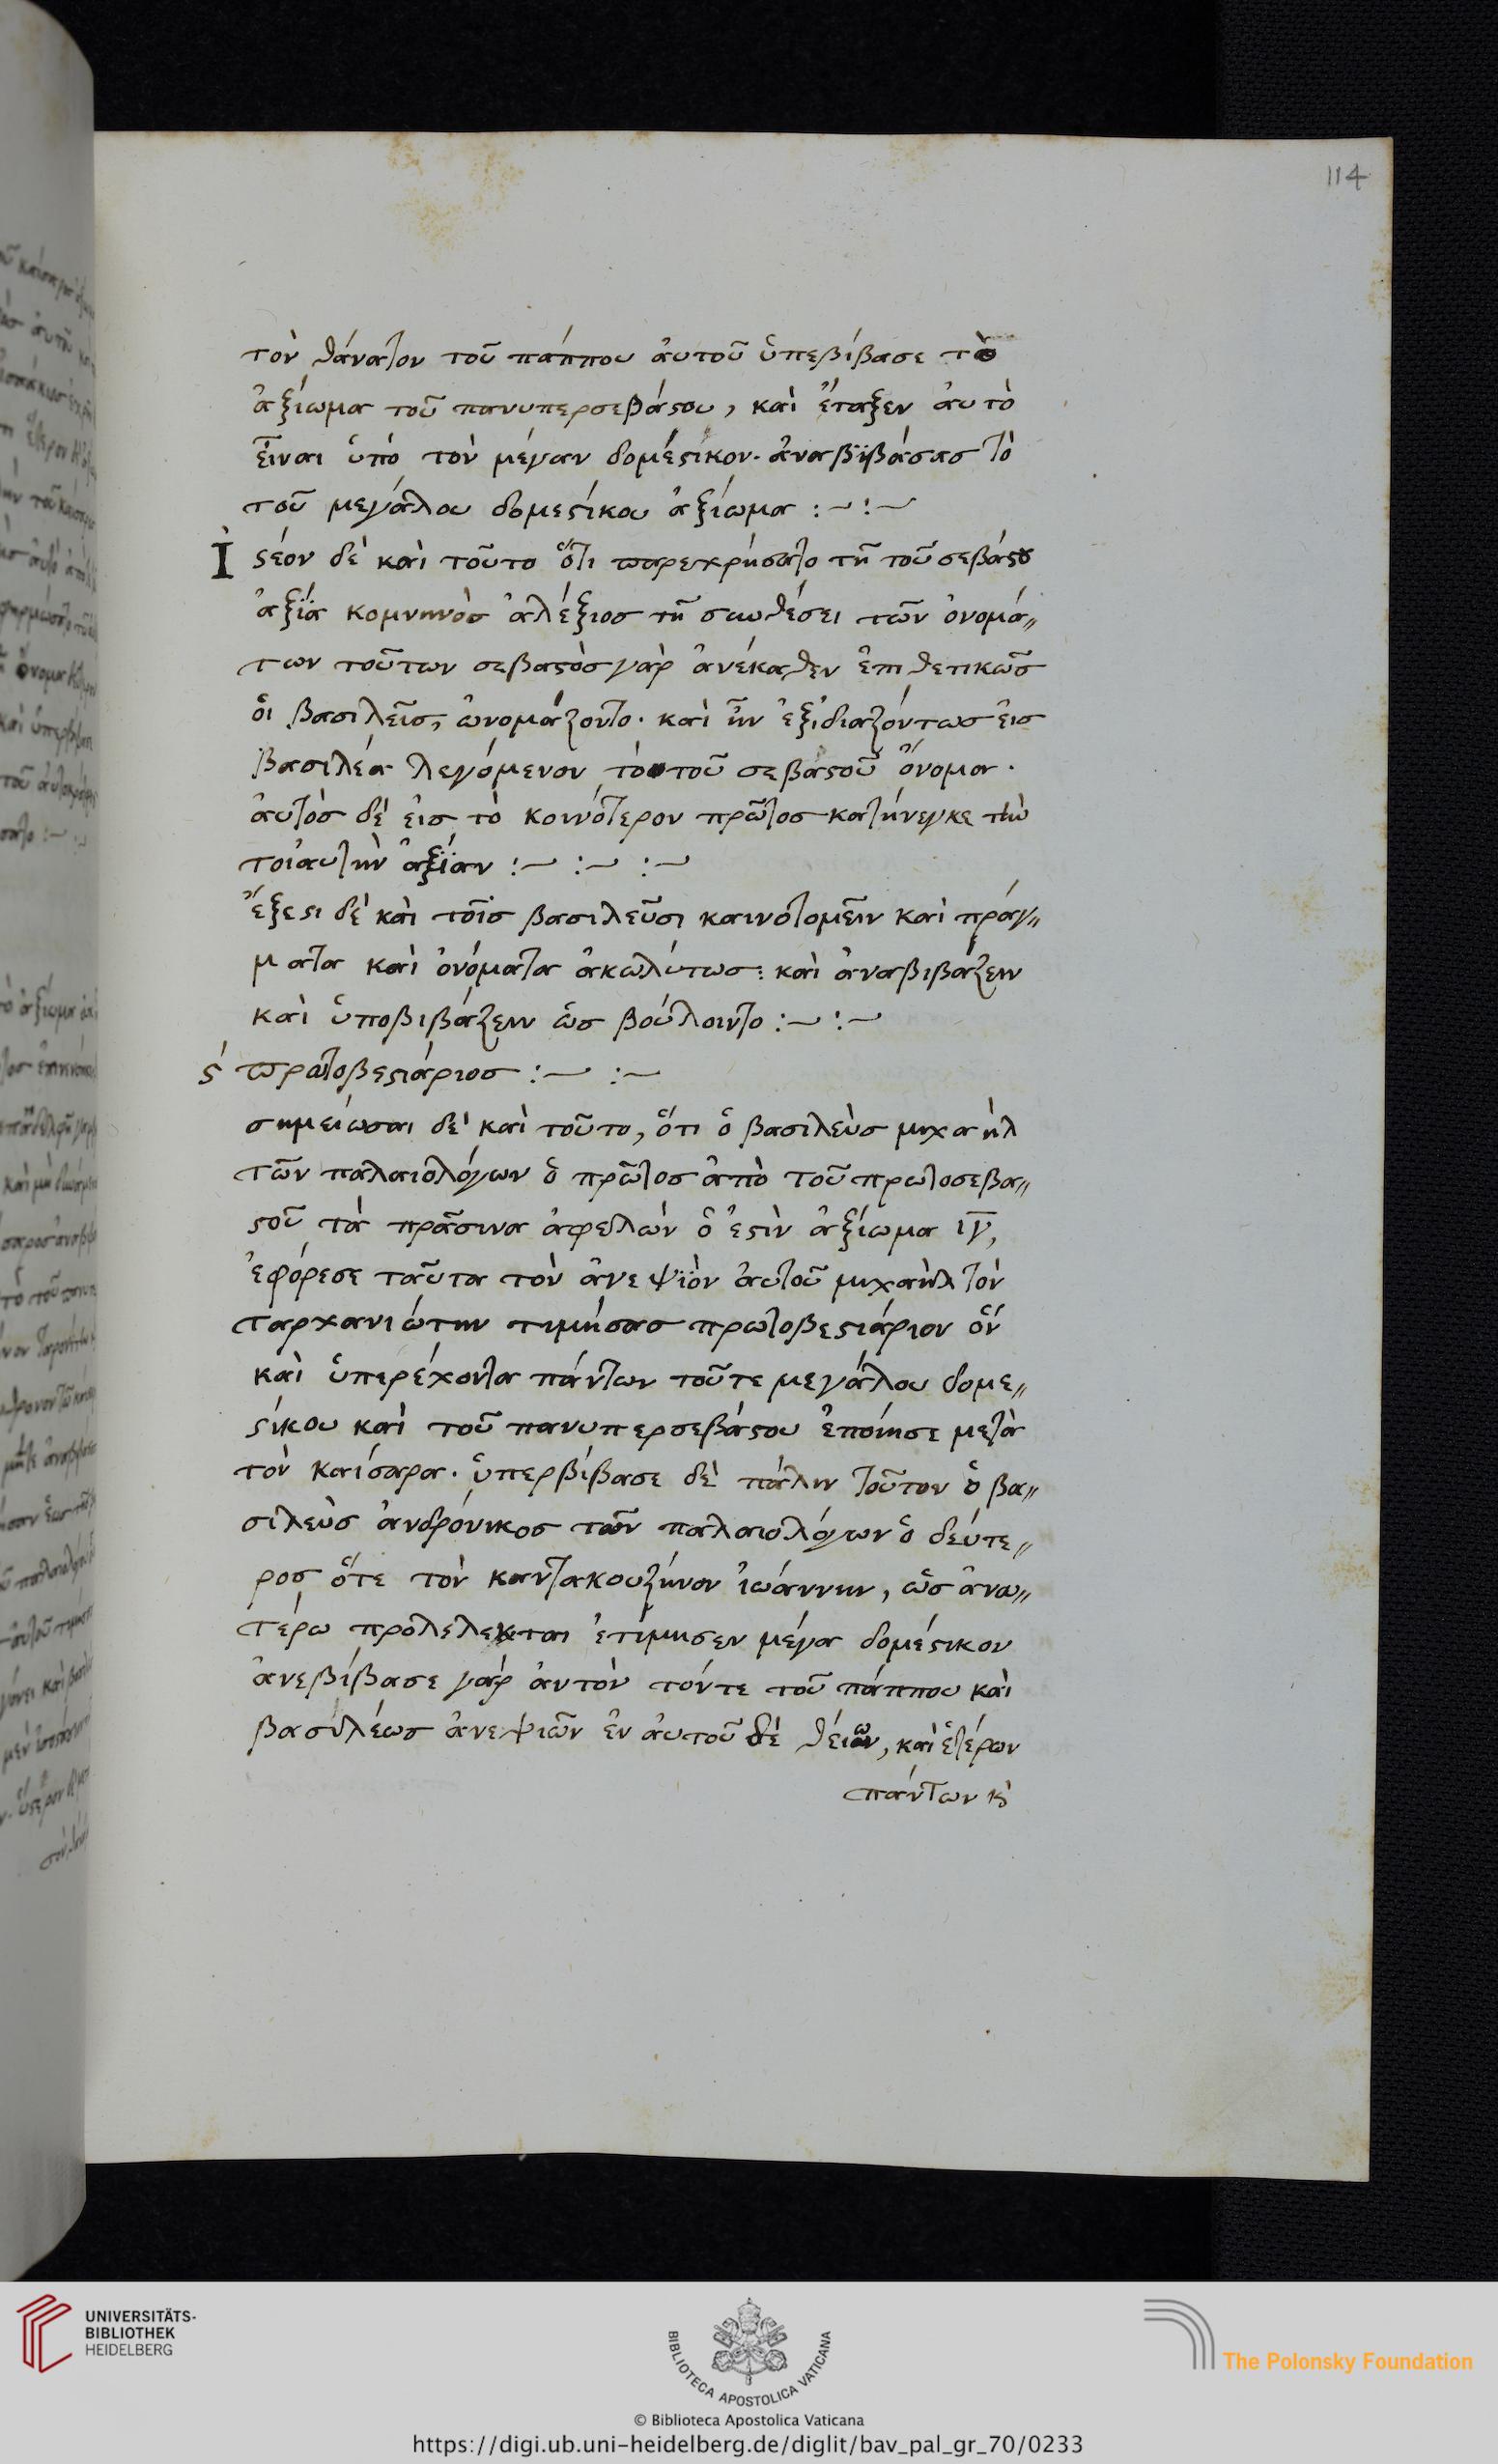 114
τὸν θάνατον τοῦ πάππου ἀυτοῦ ὑπεβίβασε τὸ
ἀξίωμα τοῦ πανυπερσεβάστου, καὶ ἔταξεν ἀυτὸ
εἶναι ὑπὸ τὸν μέγαν δομέστικον. ἀναβϊβάσας τὸ
τοῦ μεγάλου δομεστίκου ἀξίωμα :~:~
Ἰστέον δὲ καὶ τοῦτο ὅτι παρεχρήσατο τῆ τοῦ σεβάστου
ἀξϊα κομνηνὸς ἀλέξιος τῆ συνθέσει τῶν ὀνομά〃
των τούτων σεβαστὸς γὰρ ἀνέκαθεν ἐπιθετικῶς
ὁι βασιλεῖς, ὠνομάζοντο. καὶ ἦν ἐξϊδιαζόντως ἐις
βασιλέα λεγόμενον τὸ τοῦ σεβάστοῦ ὄνομα.
ἀυτὸς δὲ ἐις τὸ κοινότερον πρῶτος κατήνεγκε τὴν
τοιαυτὴν ἀξϊαν :~ :~ :~
ἔξεστι δὲ καὶ τοῖς βασιλεῦσι καινοτομεῖν καὶ πράγ〃
ματα καὶ ὀνόματα ἀκωλύτως: καὶ ἀναβιβάζειν
καὶ ὑποβιβάζειν ὡς βούλοιντο :~ :~
ϛ́ πρωτοβεστιάριος :~ :~
σημείωσαι δὲ καὶ τοῦτο, ὅτι ὁ βασιλεὺς μιχαὴλ
τῶν παλαιολόγων ὁ πρῶτος ἀπὸ τοῦ πρωτοσεβα〃
στοῦ τὰ πράσινα ἀφελὼν ὅ ἐστὶν ἀξίωμα ιγ̅,
ἐφόρεσε ταῦτα τὸν ἀνεψϊὸν ἀυτοῦ μιχαὴλ τὸν
ταρχανιώτην τιμήσας πρωτοβεστιάριον ὅν
καὶ ὑπερέχοντα πάντων τοῦτε μεγάλου δομε〃
στίκου καὶ τοῦ πανυπερσεβάστου ἐποίησε μετὰ
τὸν καίσαρα. ὑπερβίβασε δὲ πάλιν τοῦτον ὁ βα〃
σιλεὺς ἀνδρόνικος τῶν παλαιολόγων ὁ δεύτε〃
ρος ὅτε τὸν καντακουζηνον ἰωάννην, ὡς ἀνω〃
τέρω προλέλεκται ἐτίμησεν μέγα δομέστικον
ἀνεβίβασε γὰρ ἀυτὸν τόντε τοῦ πάππου καὶ
βασιλέως ἀνεψιῶν ἐν ἀυτοῦ δὲ θείων, καὶ ἑτέρων
πάντων κὶ
UNIVERSITÄTS-
BIBLIOTHEK
HEIDELBERG
BIBLIOTECA APOSTOLICA VATICANA
The Polonsky Foundation
© Biblioteca Apostolica Vaticana
https://digi.ub.uni-heidelberg.de/diglit/bav_pal_gr_70/0233